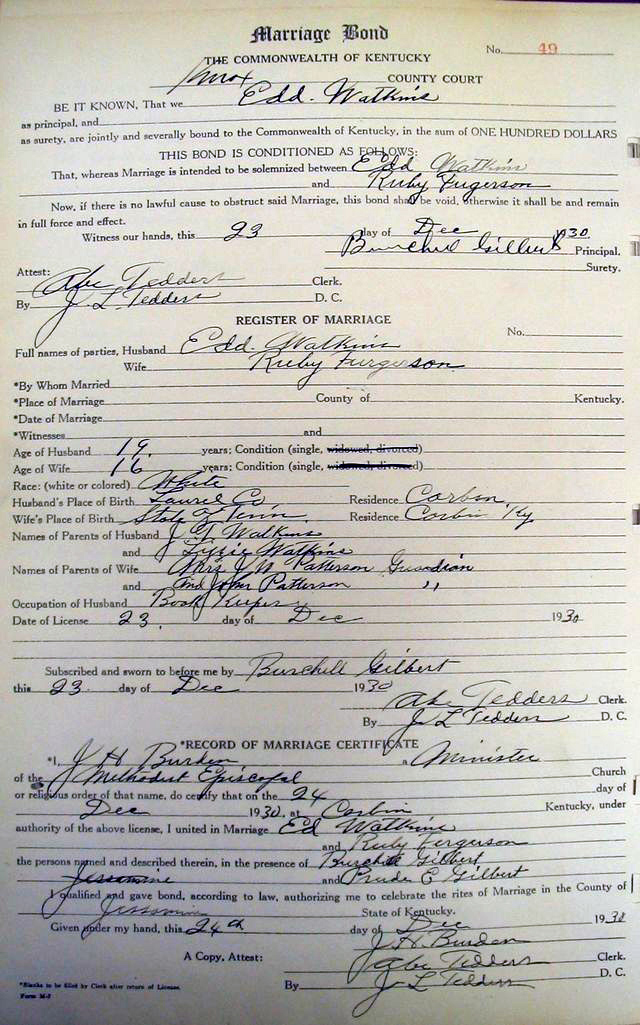 Marriage Bond
No. 49
THE COMMONWEALTH OF KENTUCKY
Knox COUNTY COURT
BE IT KNOWN, That we Edd. Watkins
as principal, and
as surety, are jointly and severally bound to the Commonwealth of Kentucky, in the sum of ONE HUNDRED DOLLARS
THIS BOND IS CONDITIONED AS FOLLOWS:
That, whereas Marriage is intended to be solemnized between Edd Watkins
and Ruby Fugerson
Now, if there is no lawful cause to obstruct said Marriage, this bond shall be void, otherwise it shall be and remain
in full force and effect.
Witness our hands, this 23 day of Dec 1930
Burchell Gilbert Principal.
Surety.
Attest:
Abe Tedders Clerk.
By J. L. Tedders D. C.
REGISTER OF MARRIAGE
No.
Full names of parties, Husband Edd. Watkins
Wife Ruby Furgerson
*By Whom Married
*Place of Marriage County of Kentucky.
*Date of Marriage
*Witnesses and
Age of Husband 19. years; Condition (single, widowed, divorced)
Age of Wife 16 years; Condition (single, widowed, divorced)
Race: (white or colored) White
Husband's Place of Birth Laurel Co Residence Corbin,
Wife's Place of Birth State of Tenn Residence Corbin Ky
Names of Parents of Husband J. Watkins
and Lizzie Watkins
Names of Parents of Wife Mrs J W Patterson Guardian
and and John Patterson "
Occupation of Husband Book Keeper
Date of License 23. day of Dec 1930
Subscribed and sworn to before me by Burchell Gilbert
this 23. day of Dec 1930
Abe Tedders Clerk.
By J L Tedders D. C.
*RECORD OF MARRIAGE CERTIFICATE
*I, J H Burden a Minister
of the Methodist Episcopal Church
or religious order of that name, do certify that on the 24 day of
Dec 1930, at Corbin Kentucky, under
authority of the above license, I united in Marriage Ed Watkins
and Ruby Fergerson
the persons named and described therein, in the presence of Burchell Gilbert
Jessamine and E Gilbert
I qualified and gave bond, according to law, authorizing me to celebrate the rites of Marriage in the County of
Jessamine State of Kentucky.
Given under my hand, this 24th day of Dec 1930
J. H. Burden
A Copy, Attest: Abe Tedders Clerk.
By J L Tedders D. C.
*Blanks to be filled by Clerk after return of License.
Form M-2